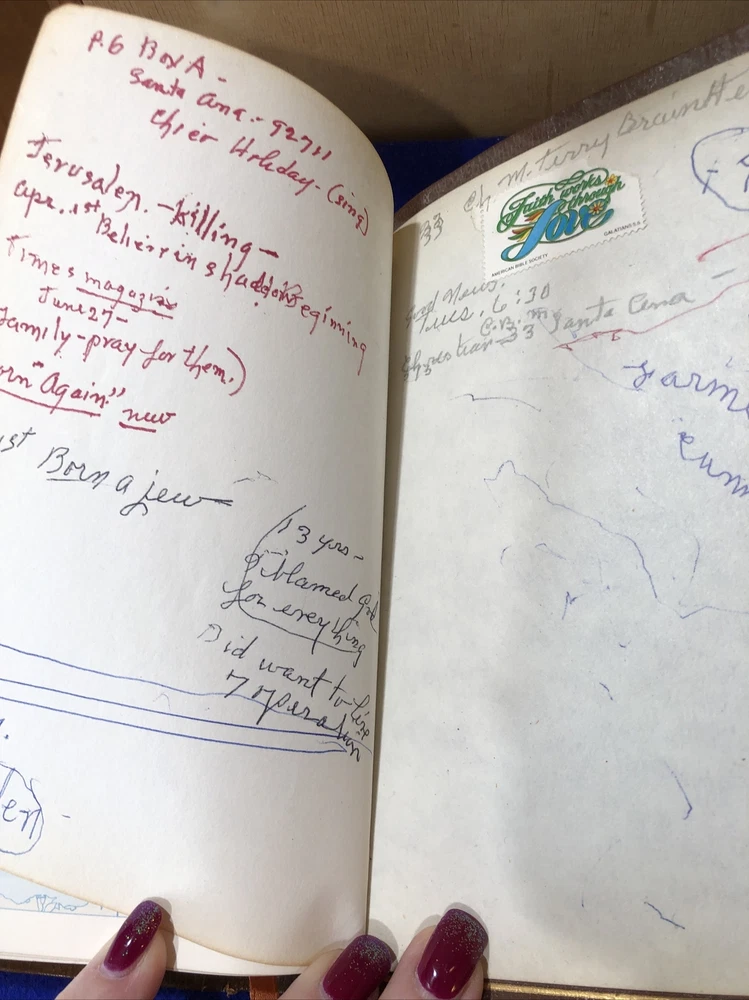 P.O Box A -
Santa Ana - 92711
Holiday - (sing)
Jerusalem. - killing -
apr. 1st
Believe in
Beginning
Times magazine
June 27 -
family - pray for them.)
orn "Again" new
st Born a jew
13 yrs -
blamed God
for everything
Did want to live
7 operation
en
33 Ch M. Terry
Faith works
through
Love
GALATIANS 5:6
AMERICAN BIBLE SOCIETY
Good News.
Tues. 6:30
C.B.M
Christian - 33 Santa Ana -
33